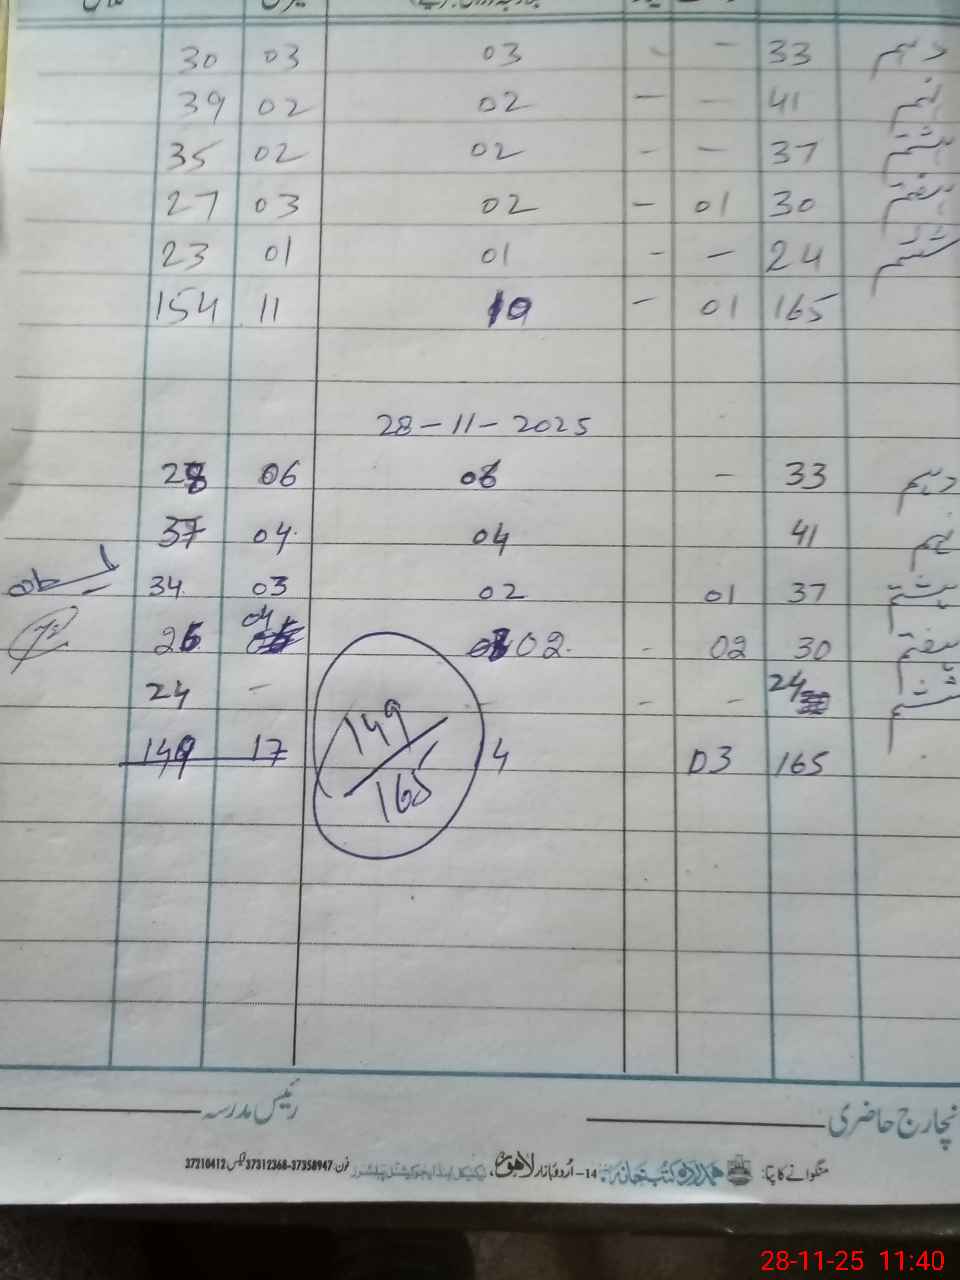 دہم 33 - - 03 03 30
نہم 41 - - 02 02 39
ہشتم 37 - - 02 02 35
ہفتم 30 01 - 02 03 27
ششم 24 - - 01 01 23
165 01 - 10 11 154
28-11-2025
دہم 33 - 06 06 28
نہم 41 04 04 37
ہشتم 37 01 02 03 34
ہفتم 30 02 - 02 04 26
ششم 24 - - - 24
165 03 4 17 149
149/165
انچارج حاضری رئیس مدرسہ
منگوانے کا پتا: ہمدرد کتب خانہ 14-اُردو بازار لاہور، فون: 37358947-37312368 فیکس 37210412
28-11-25 11:40